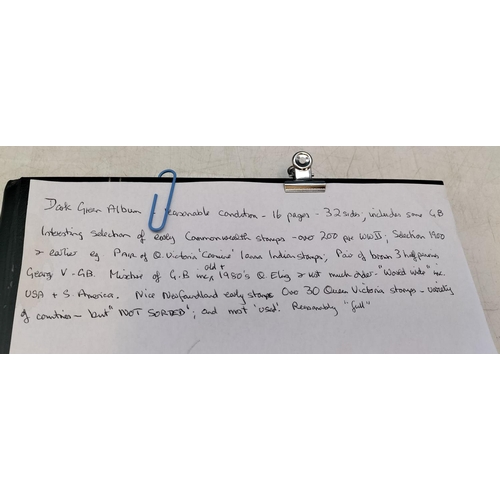 Dark Green Album - reasonable condition - 16 pages - 32 sides, includes some G.B
Interesting selection of early Commonwealth stamps - over 200 pre WWII; Selection 1900
& earlier eg Pair of Q. Victoria 'Cerise' 1 anna Indian stamps; Pair of brown 3 half pennies
Georg V - G.B. Mixture of G.B inc, old + 1980's Q. Eliz & not much order - "World Wide" inc.
USA + S. America. Nice Newfoundland early stamps Over 30 Queen Victoria stamps - variety
of countries - but "NOT SORTED"; and most 'used'. Reasonably "full"